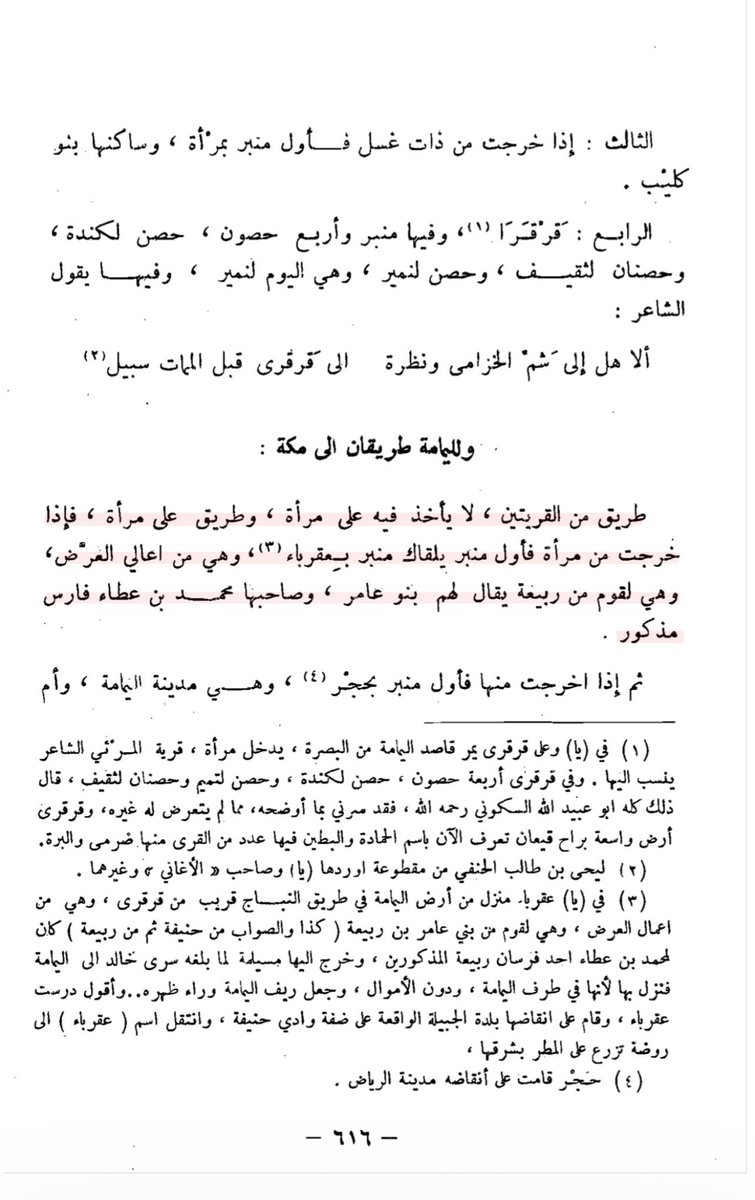 الثالث : إذا خرجت من ذات غسل فـــأول منبر بمرْأة ، وساكنها بنو
كليْب .
الرابع : قَرْقَرَا (١)، وفيها منبر وأربع حصون ، حصن لكندة ،
وحصنان لثقيــف ، وحصن لنمير ، وهي اليوم لنمير ، وفيهــا يقول
الشاعر :
ألا هل إلى شَمْ الخزامى ونظرة الى قَرقرى قبل الممات سبيل (٢)
ولليمامة طريقان الى مكة :
طريق من القريتين ، لا يأخذ فيه على مرأة ، وطريق على مرأة ، فإذا
خرجت من مرأة فأول منبر يلقاك منبر بِعقرباء (٣)، وهي من اعالي العِرْض،
وهي لقوم من ربيعة يقال لهم بنو عامر ، وصاحبها محمــد بن عطاء فارس
مذكور .
ثم إذا اخرجت منها فأول منبر بحجْر (٤) ، وهــي مدينة اليمامة ، وأم
(١) في (يا) وعلى قرقرى يمر قاصد اليمامة من البصرة ، يدخل مرأة ، قرية المرْئي الشاعر
ينسب اليها . وفي قرقرى أربعة حصون ، حصن لكندة ، وحصن لتميم وحصنان لثقيف ، قال
ذلك كله ابو عبيد الله السكوني رحمه الله ، فقد سرني بما أوضحه، مما لم يتعرض له غيره، وقرقرى
أرض واسعة براح قيعان تعرف الآن باسم الحمادة والبطين فيها عدد من القرى منها ضرمى والبرة.
(٢) ليحى بن طالب الحنفي من مقطوعة اوردها (يا) وصاحب « الأغاني » وغيرهما .
(٣) في (يا) عقرباء منزل من أرض اليمامة في طريق النبــاج قريب من قرقرى ، وهي من
اعمال العرض ، وهي لقوم من بني عامر بن ربيعة ( كذا والصواب من حنيفة ثم من ربيعة ) كان
لمحمد بن عطاء احد فرسان ربيعة المذكورين ، وخرج اليها مسيلمة لما بلغه سرى خالد الى اليمامة
فنزل بها لأنها في طرف اليمامة ، ودون الأموال ، وجعل ريف اليمامة وراء ظهره..وأقول درست
عقرباء ، وقام على انقاضها بلدة الجبيلة الواقعة على ضفة وادي حنيفة ، وانتقل اسم ( عقرباء ) الى
روضة تزرع على المطر بشرقها ،
(٤) حَجْر قامت على أنقاضه مدينة الرياض .
– ٦١٦ –